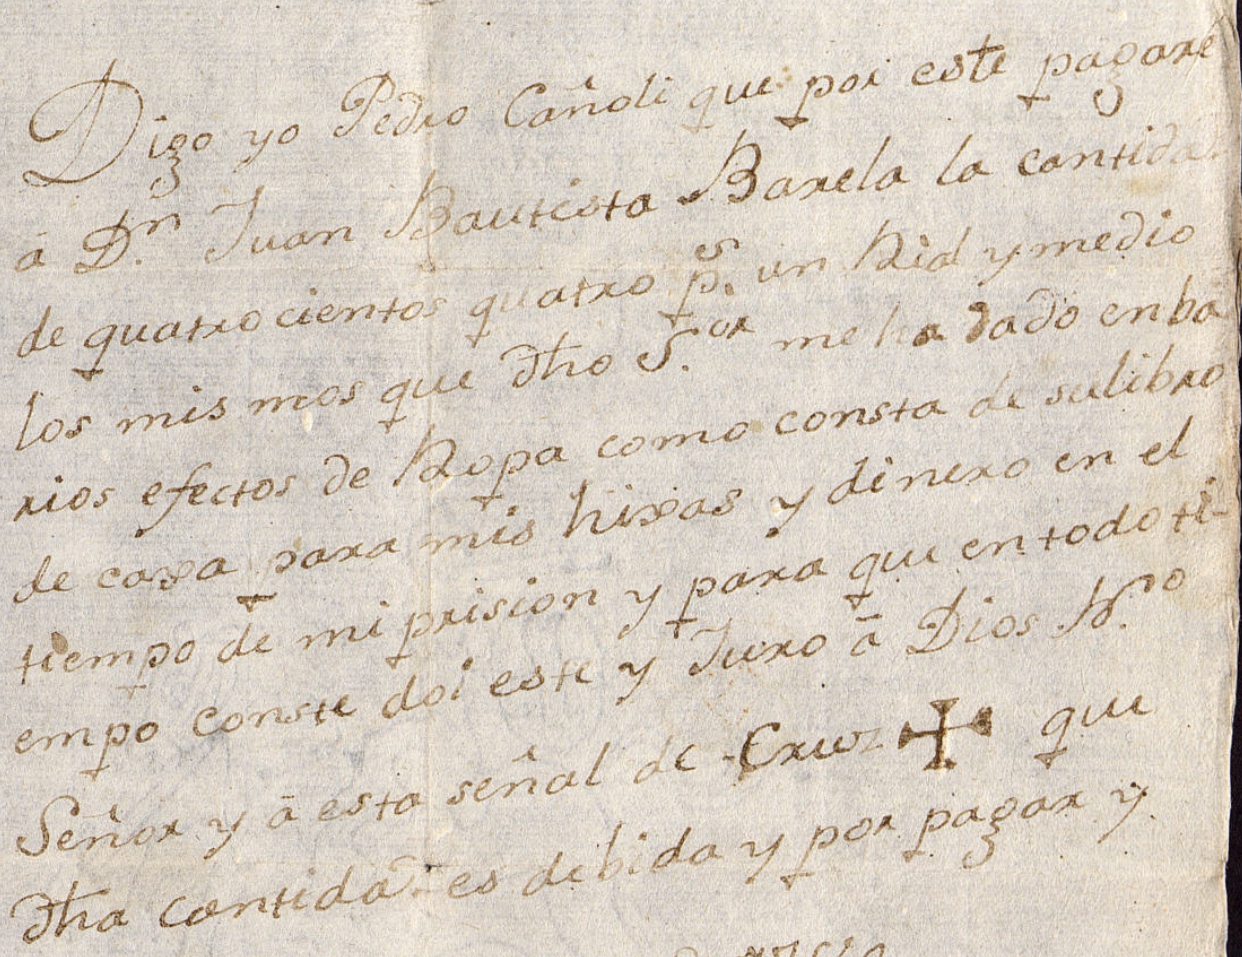 Digo yo Pedro Cañoli que por este pagare
â D.n Juan Bautista Barela la cantidad
de quatrocientos quatro p.s un Rial y medio
los mismos que dho S.or me ha dado en ba
rios efectos de Ropa como consta de su libro
de caxa para mis hixas y dinero en el
tiempo de mi prision y para que en todo ti-
empo conste doi este y Juro â Dios N.ro
Señor y â esta señal de Cruz ✠ que
dha cantidad es debida y por pagar y